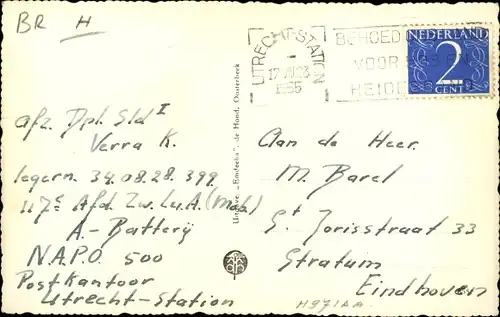 BR H
UTRECHT-STATION
17.VII.23
1955
BEHOED
VOOR
HEIDE
NEDERLAND
2
CENT
afz. Dpl. Sld I
Verra K.
legern. 34.08.28.399
117e Afd. Zw. Lu.A. (Mob.)
A-Batterÿ
N.A.P.O. 500
Postkantoor
Utrecht-Station
Uitgave „Eendracht” de Hond, Oosterbeek
Aan de Heer.
M. Barel
St Jorisstraat 33
Stratum
Eindhoven
H971AA